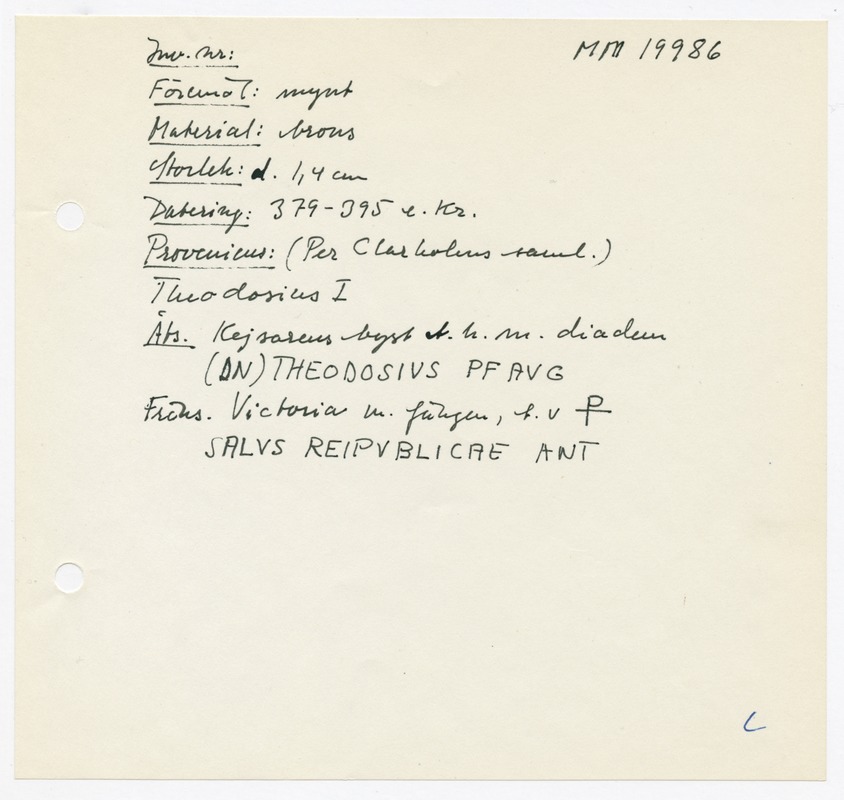 Inv. nr: MM 19986
Föremål: mynt
Material: brons
Storlek: d. 1,4 cm
Datering: 379-395 e. Kr.
Proveniens: (Per Clarholms saml.)
Theodosius I
Åts. Kejsarens byst t. h. m. diadem
(DN) THEODOSIVS PF AVG
Fråns. Victoria m. fången, t. v ⳨
SALVS REIPVBLICAE ANT
L